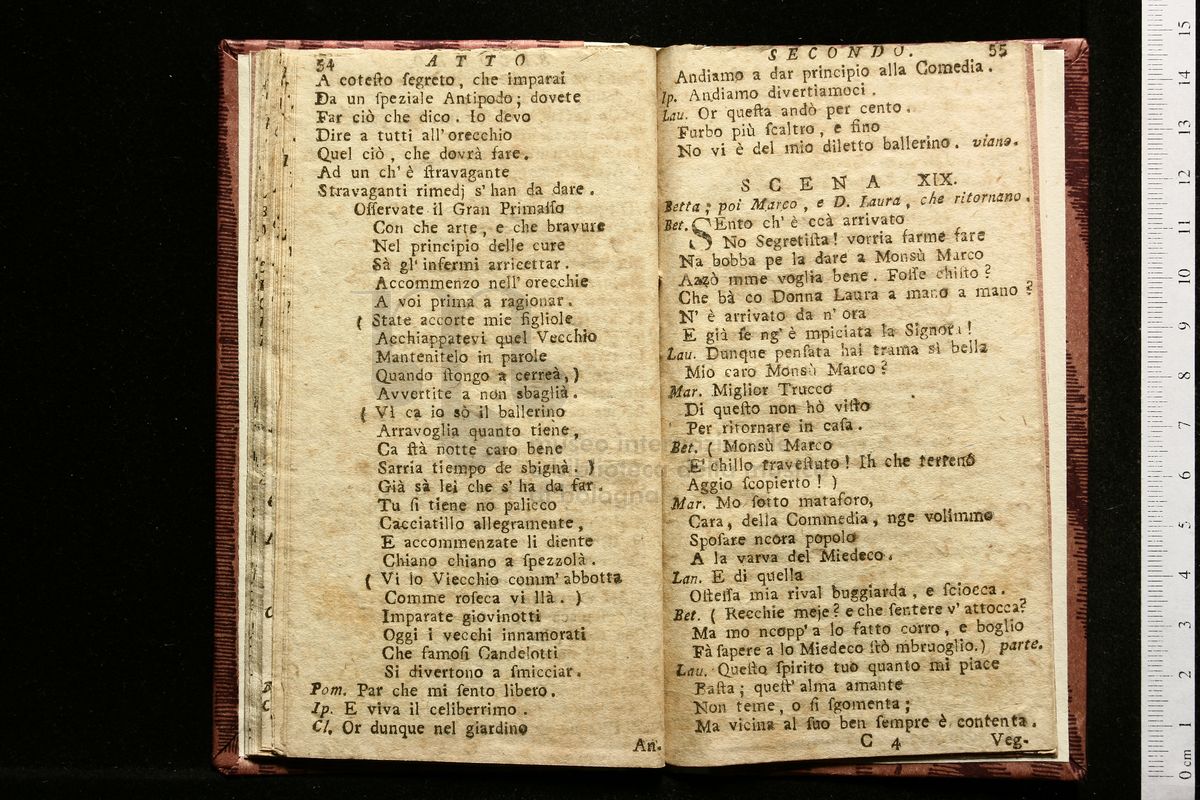 54 ATTO
A cotesto segreto, che imparai
Da un speziale Antipodo; dovete
Far ciò che dico. Io devo
Dire a tutti all' orecchio
Quel ciò, che dovrà fare.
Ad un ch' è stravagante
Stravaganti rimedj s' han da dare.
Osservate il Gran Primasso
Con che arte, e che bravure
Nel principio delle cure
Sà gl' infermi arricettar.
Accommenzo nell' orecchie
A voi prima a ragionar.
( State accorte mie figliole
Acchiappatevi quel Vecchio
Mantenitelo in parole
Quando stongo a cerreà, )
Avvertite a non sbaglià.
( Vì ca io sò il ballerino
Arravoglia quanto tiene,
Ca stà notte caro bene
Sarria tiempo de sbignà. )
Già sà lei che s' ha da far.
Tu si tiene no palicco
Cacciatillo allegramente,
E accommenzate li diente
Chiano chiano a spezzolà.
( Vi lo Viecchio comm' abbotta
Comme roseca vi llà. )
Imparate giovinotti
Oggi i vecchi innamorati
Che famosi Candelotti
Si divertono a smicciar.
Pom. Par che mi sento libero.
Ip. E viva il celiberrimo.
Cl. Or dunque nel giardino
An-
SECONDO. 55
Andiamo a dar principio alla Comedia.
Ip. Andiamo divertiamoci.
Lau. Or questa andò per cento.
Furbo più scaltro, e fino
No vi è del mio diletto ballerino. viano.
SCENA XIX.
Betta; poi Marco, e D. Laura, che ritornano.
Bet. SEnto ch' è ccà arrivato
No Segretista! vorria farme fare
Na bobba pe la dare a Monsù Marco
Azzò mme voglia bene. Fosse chisto?
Che bà co Donna Laura a mano a mano?
N' è arrivato da n' ora
E già se ng' è mpiciata la Signora!
Lau. Dunque pensata hai trama sì bella
Mio caro Monsù Marco?
Mar. Miglior Trucco
Di questo non hò visto
Per ritornare in casa.
Bet. ( Monsù Marco
E' chillo travestuto! Ih che terreno
Aggio scopierto! )
Mar. Mo sotto mataforo,
Cara, della Commedia, nge volimmo
Sposare ncora popolo
A la varva del Miedeco.
Lan. E di quella
Ostessa mia rival buggiarda, e sciocca.
Bet. ( Recchie meje? e che sentere v' attocca?
Ma mo ncopp' a lo fatto corro, e boglio
Fà sapere a lo Miedeco stò mbruoglio.) parte.
Lau. Questo spirito tuo quanto mi piace
Basta; quest' alma amante
Non teme, o si sgomenta;
Ma vicina al suo ben sempre è contenta.
C 4 Veg-